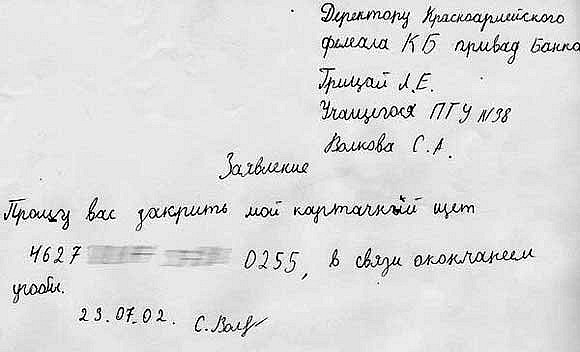 Деректору Красноармейского
фелеала КБ приват Банка
Грицай Л.Е.
Учащегося ПТУ №38
Волкова С.А.
Заявление
Прошу вас закрить мой картачный щет
4627 0255, в связи окончанеем
учобы.
23.07.02. С.Волк